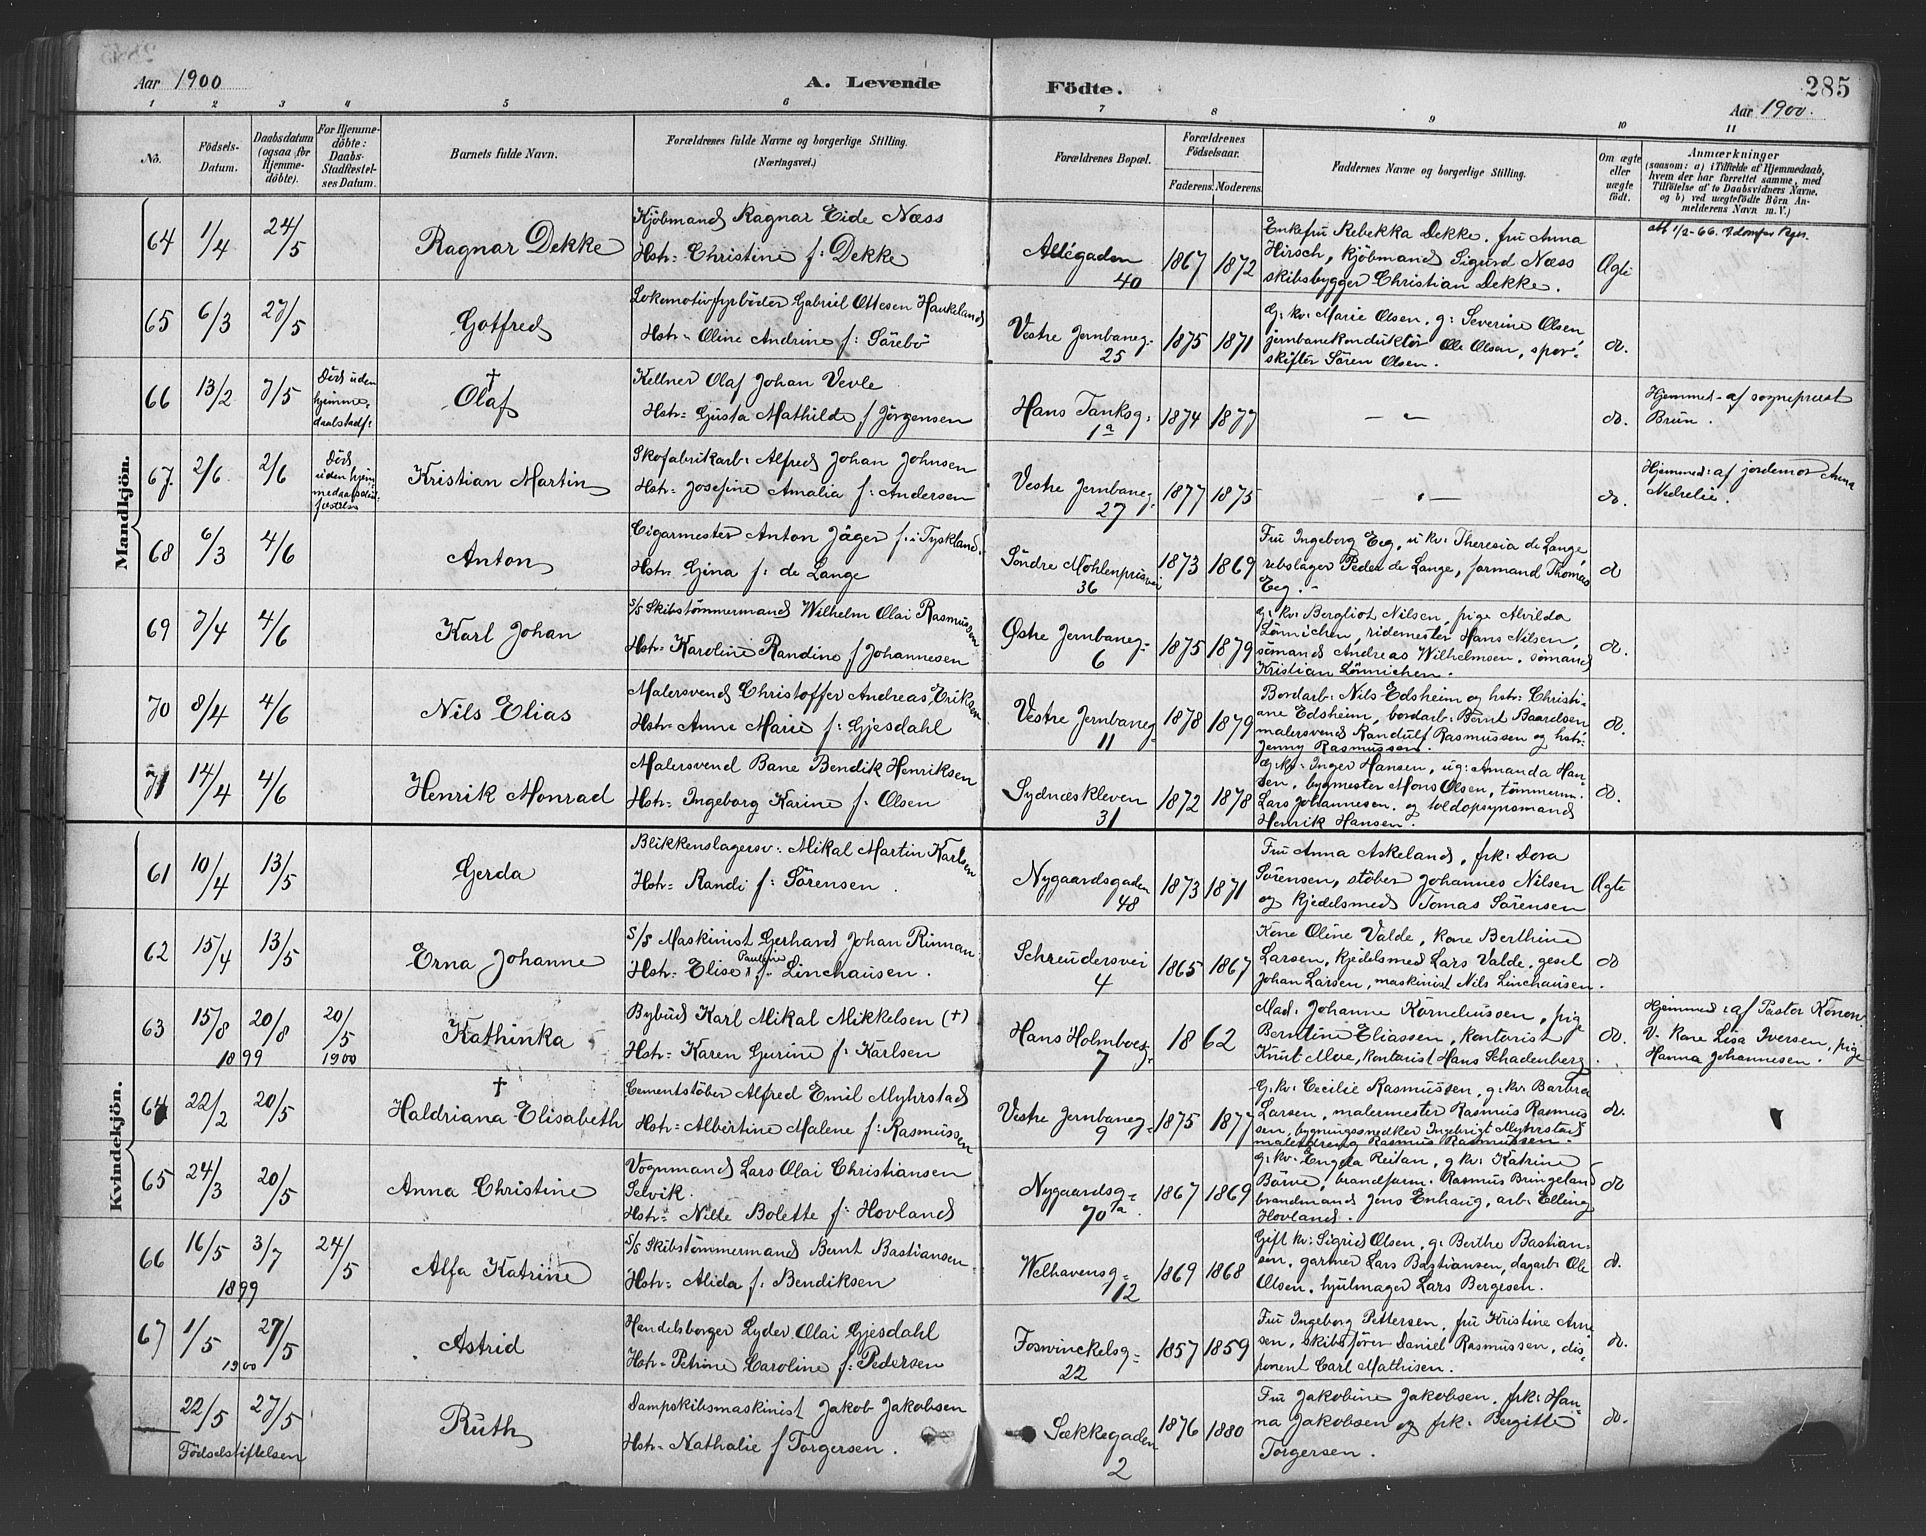 Aar 1900
A. Levende Födte.
285
Aar 1900.
1 2 3 4 5 6 7 8 9 10 11
No.
Födsels-Datum.
Daabsdatum (ogsaa for Hjemme-döbte).
For Hjemme-döbte: Daabs-Stadfæstel-ses Datum.
Barnets fulde Navn.
Forældrenes fulde Navne og borgerlige Stilling.
(Næringsvei.)
Forældrenes Bopæl.
Forældrenes Födselsaar.
Faderens. Moderens.
Faddernes Navne og borgerlige Stilling.
Om ægte eller uægte født.
Anmærkninger
(saasom: a) i Tilfælde af Hjemmedaab, hvem der har forrettet samme, med Tilföielse af to Daabsvidners Navne, og b) ved uægtefödte Börn An-melderens Navn m. V.)
Mandkjön.
64 1/4 24/5 Ragnar Dekke
Kjöbmand Ragnar Eide Næss
Hstr: Christine f: Dekke
Allégaden 40
1867 1872
Enkefru Rebekka Dekke, fru Anna
Hirsch, kjöbmand Sigurd Næss
skibsbygger Christian Dekke.
Ægte
att 1/2-66.
65 6/3 27/5 Gotfred
Lokomotivfyrböder Gabriel Ottesen Haukeland
Hstr: Oline Andrine f: Sörebö
Vestre Jernbaneg: 25
1875 1871
G: kv: Marie Olsen, g: Severine Olsen,
jernbanekonduktör Ole Olsen, spor-
skifter Sören Olsen.
do.
66 13/2 7/5
Död uden hjemme-daabsstadf:
† Olaf
Kellner Olaf Johan Vevle
Hstr: Gusta Mathilde f: Jörgensen
Hans Tanksg: 1a
1874 1877
— „ —
do.
Hjemmed: af sogneprest
Brun.
67. 2/6 2/6
Död uden hjemmedaabsstadfestelse
Kristian Martin
Skofabrikarb: Alfred Johan Johnsen
Hstr: Josefine Amalia f: Andersen
Vestre Jernbaneg: 27
1877 1875
— „ —
do.
Hjemmed: af jordemor Anna
Nedrelie.
68 6/3 4/6 Anton
Cigarmester Anton Jäger f. i Tyskland.
Hstr: Gina f: de Lange
Söndre Möhlenprisvei 36
1873 1869
Fru Ingeborg Eeg, u kv: Theresia de Lange,
rebslager Peder de Lange, formand Thomas
Eeg. -
do
69 7/4 4/6 Karl Johan
S/S Skibstömmermand Wilhelm Olai Rasmussen
Hstr: Karoline Randine f: Johannesen
Østre Jernbaneg: 6
1875 1879
g: kv: Bergliot Nilsen, pige Alvilda
Lönnichen, ridemester Hans Nilsen,
sömand Andreas Wilhelmsen, sömand
Kristian Lönnichen.
do.
70 8/4 4/6 Nils Elias
Malersvend Christoffer Andreas Eriksen
Hstr: Anne Marie f: Gjesdahl
Vestre Jernbaneg: 11
1878 1879
Bordarb: Nils Edsheim og hstr: Christi-
ane Edsheim, bordarb: Bernt Baardsen
malersvend Randulf Rasmussen og hstr:
Jenny Rasmussen.
do.
71 14/4 4/6 Henrik Monrad
Malersvend Bane Bendik Henriksen
Hstr: Ingeborg Karine f: Olsen
Sydnæskleven 31
1872 1878
g: kv: Inger Hansen, ug: Amanda Han-
sen, bygmester Mons Olsen, tömmerm:
Lars Johannesen, og toldopsynsmand
Henrik Hansen.
do.
Kvindekjön.
61 10/4 13/5 Gerda
Blikkenslagersv: Mikal Martin Karlsen
Hstr: Randi f: Sörensen.
Nygaardsgaden 48
1873 1871
Fru Anna Askeland, frk: Dora
Sörensen, stöber Johannes Nilsen
og kjedelsmed Tomas Sörensen
Ægte
62 15/4 13/5 Erna Johanne
S/S Maskinist Gerhard Johan Rinnan.
Hstr: Elise Pauline f: Linchausen.
Schreudersvei 4
1865 1867
Kone Oline Valde, kone Berthine
Larsen, kjedelsmed Lars Valde, gesel
Johan Larsen, maskinist Nils Linchausen.
do
63 15/8 20/8 1899 20/5 1900 Kathinka
Bybud Karl Mikal Mikkelsen (†)
Hstr: Karen Gurine f: Karlsen
Hans Holmboesg: 7
1862
Mad. Johanne Korneliussen, pige
Berntine Eliassen, kontorist
Knut Moe, kontorist Hans Schadenberg.
do.
Hjemmed: af Pastor Konow.
V. kone Lisa Iversen, pige
Hanna Johannesen.
64 22/2 20/5
† Haldriana Elisabeth
Cementstöber Alfred Emil Myhrstad
Hstr: Albertine Malene f: Rasmussen
Vestre Jernbaneg: 9
1875 1877
G: kv: Cecilie Rasmussen, g: kv: Barbra
Larsen, malermester Rasmus Rasmus-
sen, bygningssnedker Ingebrigt Myhrstad
maledreng Rasmus Rasmussen.
do.
65 24/3 20/5 Anna Christine
Vognmand Lars Olai Christiansen
Selvik.
Hstr: Nille Bolette f: Hovland
Nygaardsg: 70a.
1867 1869
g: kv: Engela Reitan, g: kv: Katrine
Börve, brandform. Rasmus Bringeland
brandmand Jens Enhaug, arb: Elling
Hovland.
do
66 16/5 3/7 1899 24/5 Alfa Katrine
S/S Skibstömmermand Bernt Bastiansen.
Hstr: Alida f: Bendiksen
Welhavensg: 12
1869 1868
Gift kv: Sigrid Olsen, g: Berthe Bastian-
sen, gartner Lars Bastiansen, dagarb: Ole
Olsen, hjulmager Lars Bergesen.
do.
67 1/5 1900 27/5 Astrid
Handelsborger Lyder Olai Gjesdahl
Hstr: Petrine Caroline f: Pedersen
Foswinckelsg: 22
1857 1859
Fru Ingeborg Pettersen, fru Kristine Arne-
sen, skibsförer Daniel Rasmussen, dis-
ponent Carl Mathisen.
do.
22/5 27/5 Ruth
Födselsstiftelsen
Dampskibsmaskinist Jakob Jakobsen
Hstr: Nathalie f: Torgersen.
Sækkegaden 2
1876 1880
Fru Jakobine Jakobsen, frk: Han-
na Jakobsen og frk: Bergitte
Torgersen.
do.